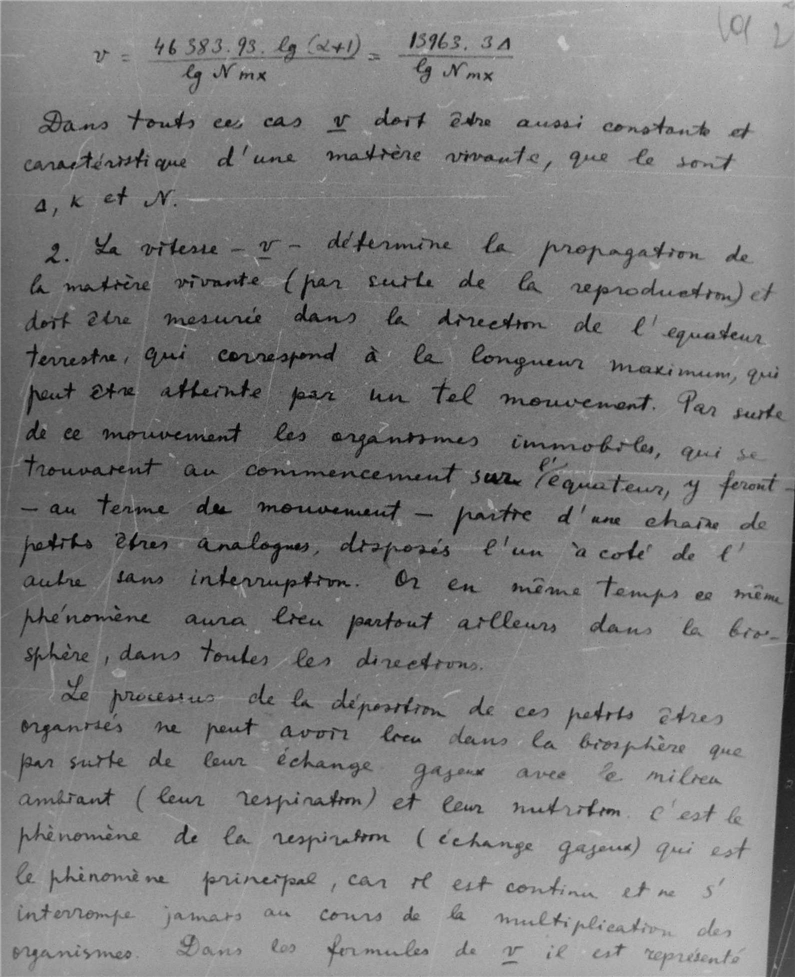 v = 46 383.93. lg (α+1) / lg Nmx = 13963. 3Δ / lg Nmx
Dans touts ces cas v doit être aussi constante et
caractéristique d'une matière vivante, que le sont
Δ, K et N.
2. La vitesse – v – détermine la propagation de
la matière vivante (par suite de la reproduction) et
doit être mesurée dans la direction de l'equateur
terrestre, qui correspond à la longueur maximum, qui
peut être atteinte par un tel mouvement. Par suite
de ce mouvement les organismes immobiles, qui se
trouvaient au commencement sur l'équateur, y feront –
– au terme du mouvement – partie d'une chaine de
petits êtres analogues, disposés l'un à coté de l'
autre sans interruption. Or en même temps ce même
phénomène aura lieu partout ailleurs dans la bio-
sphère, dans toutes les directions.
Le processus de la déposition de ces petits êtres
organisés ne peut avoir lieu dans la biosphère que
par suite de leur échange gazeux avec le milieu
ambiant (leur respiration) et leur nutrition. C'est le
phènomène de la respiration (échange gazeux) qui est
le phènomène principal, car il est continu et ne s'
interrompe jamais au cours de la multiplication des
organismes. Dans les formules de v il est représenté